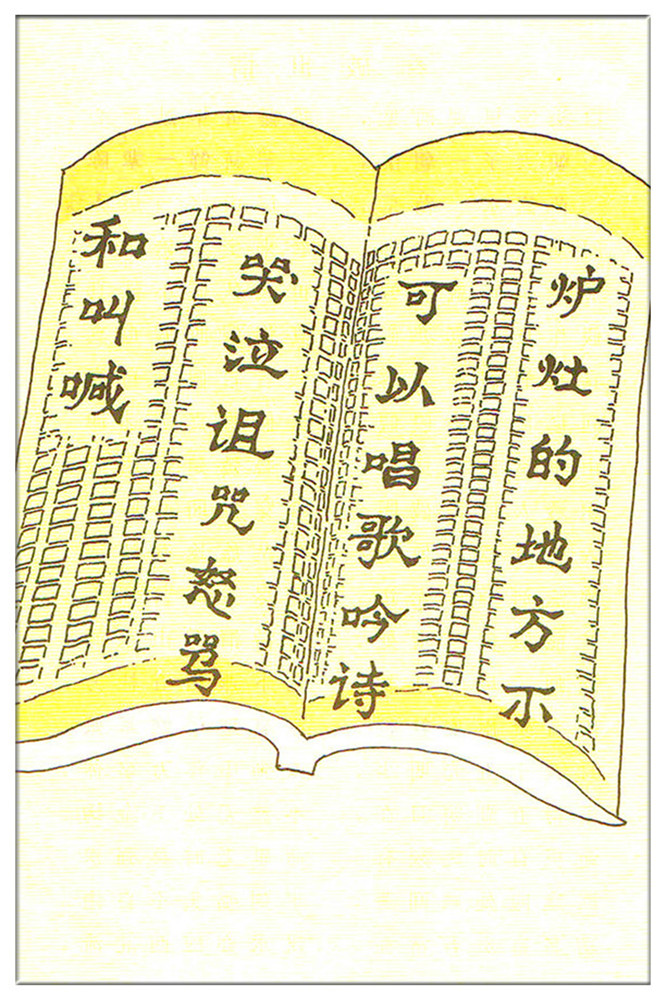 炉灶的地方不
可以唱歌吟诗
哭泣诅咒怒骂
和叫喊